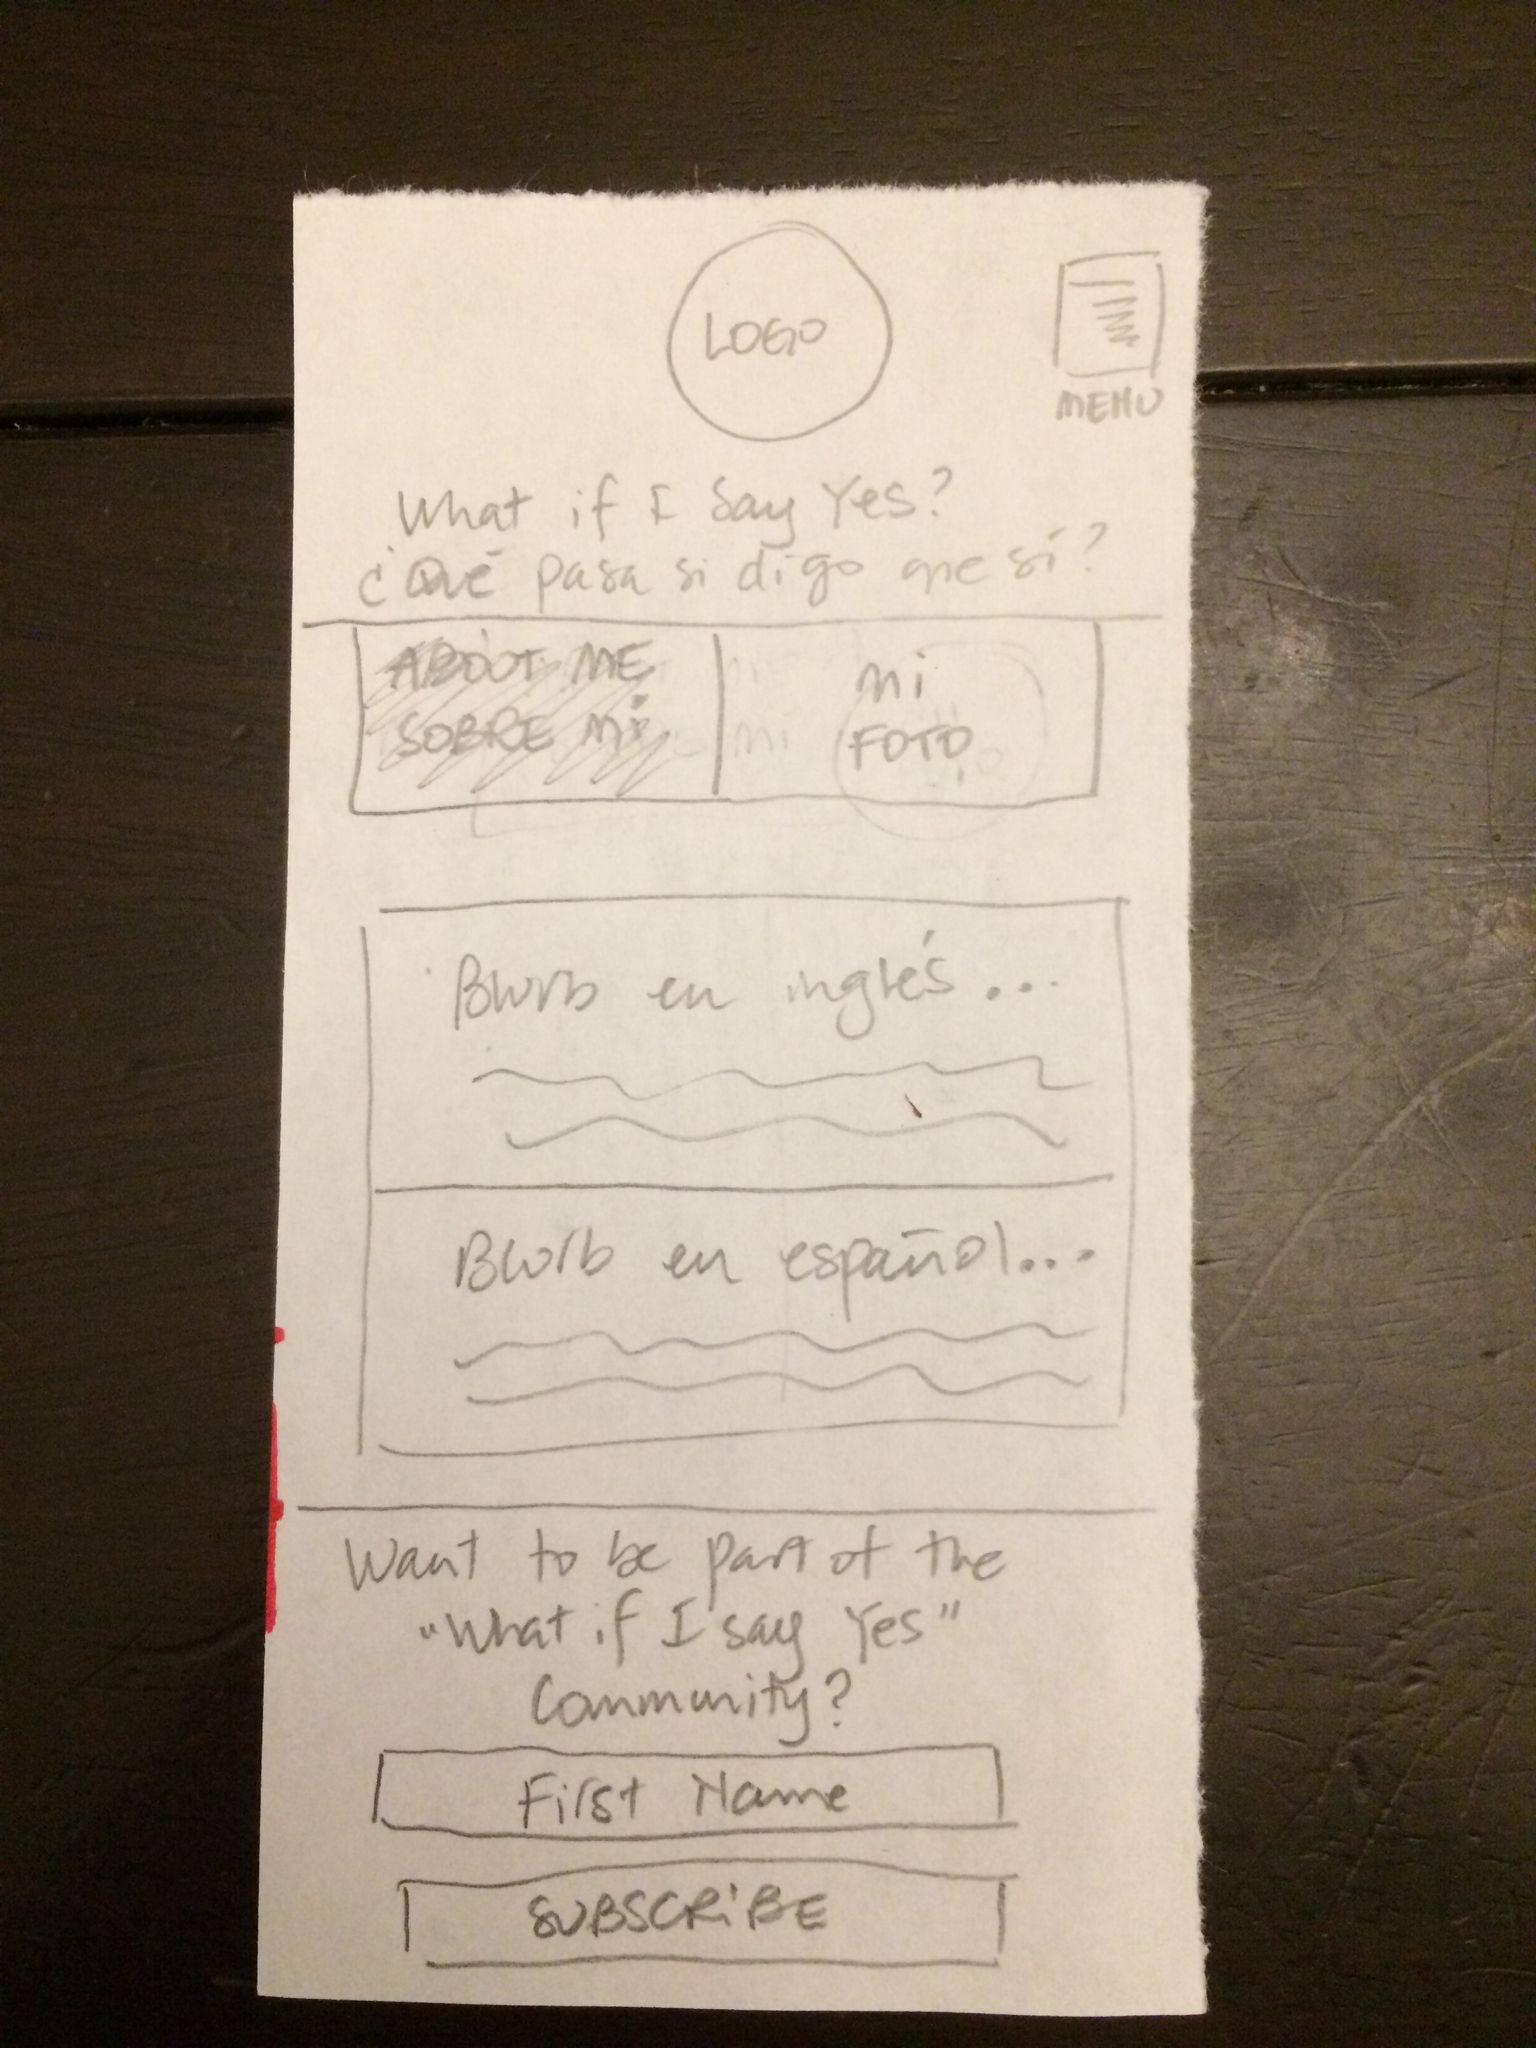 LOGO
MENU
What if I Say Yes?
¿Qué pasa si digo que sí?
ABOUT ME
SOBRE Mi
Mi
FOTO
Blurb en inglés...
Blurb en español...
Want to be part of the
"What if I say Yes"
Community?
First Name
SUBSCRiBE